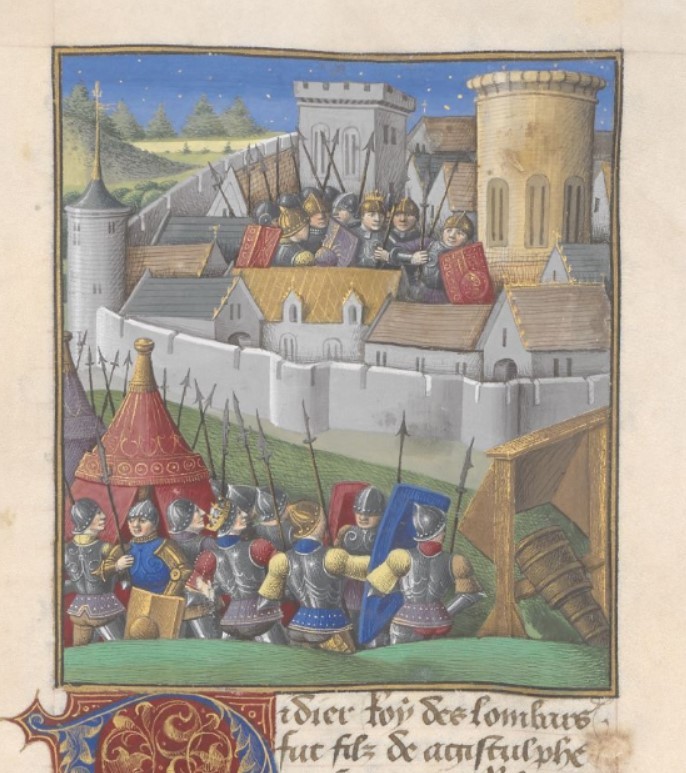 Didier roy des lombars
fut filz de agistulphe